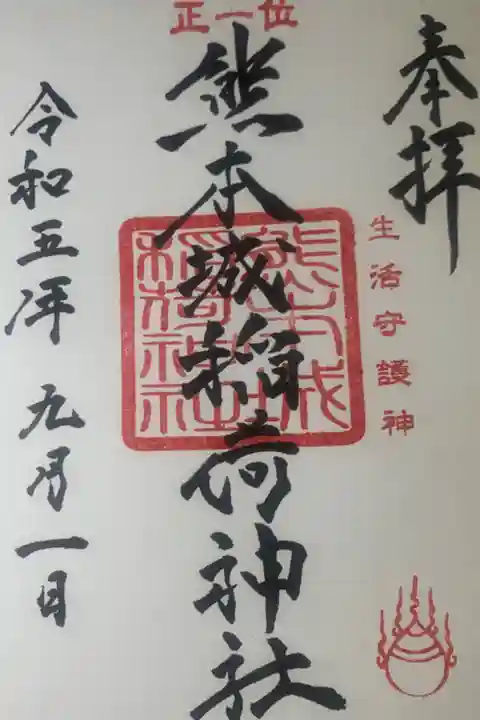 奉拝
生活守護神
正一位
熊本城稲荷神社
熊本城
稲荷神社
令和五年 九月一日